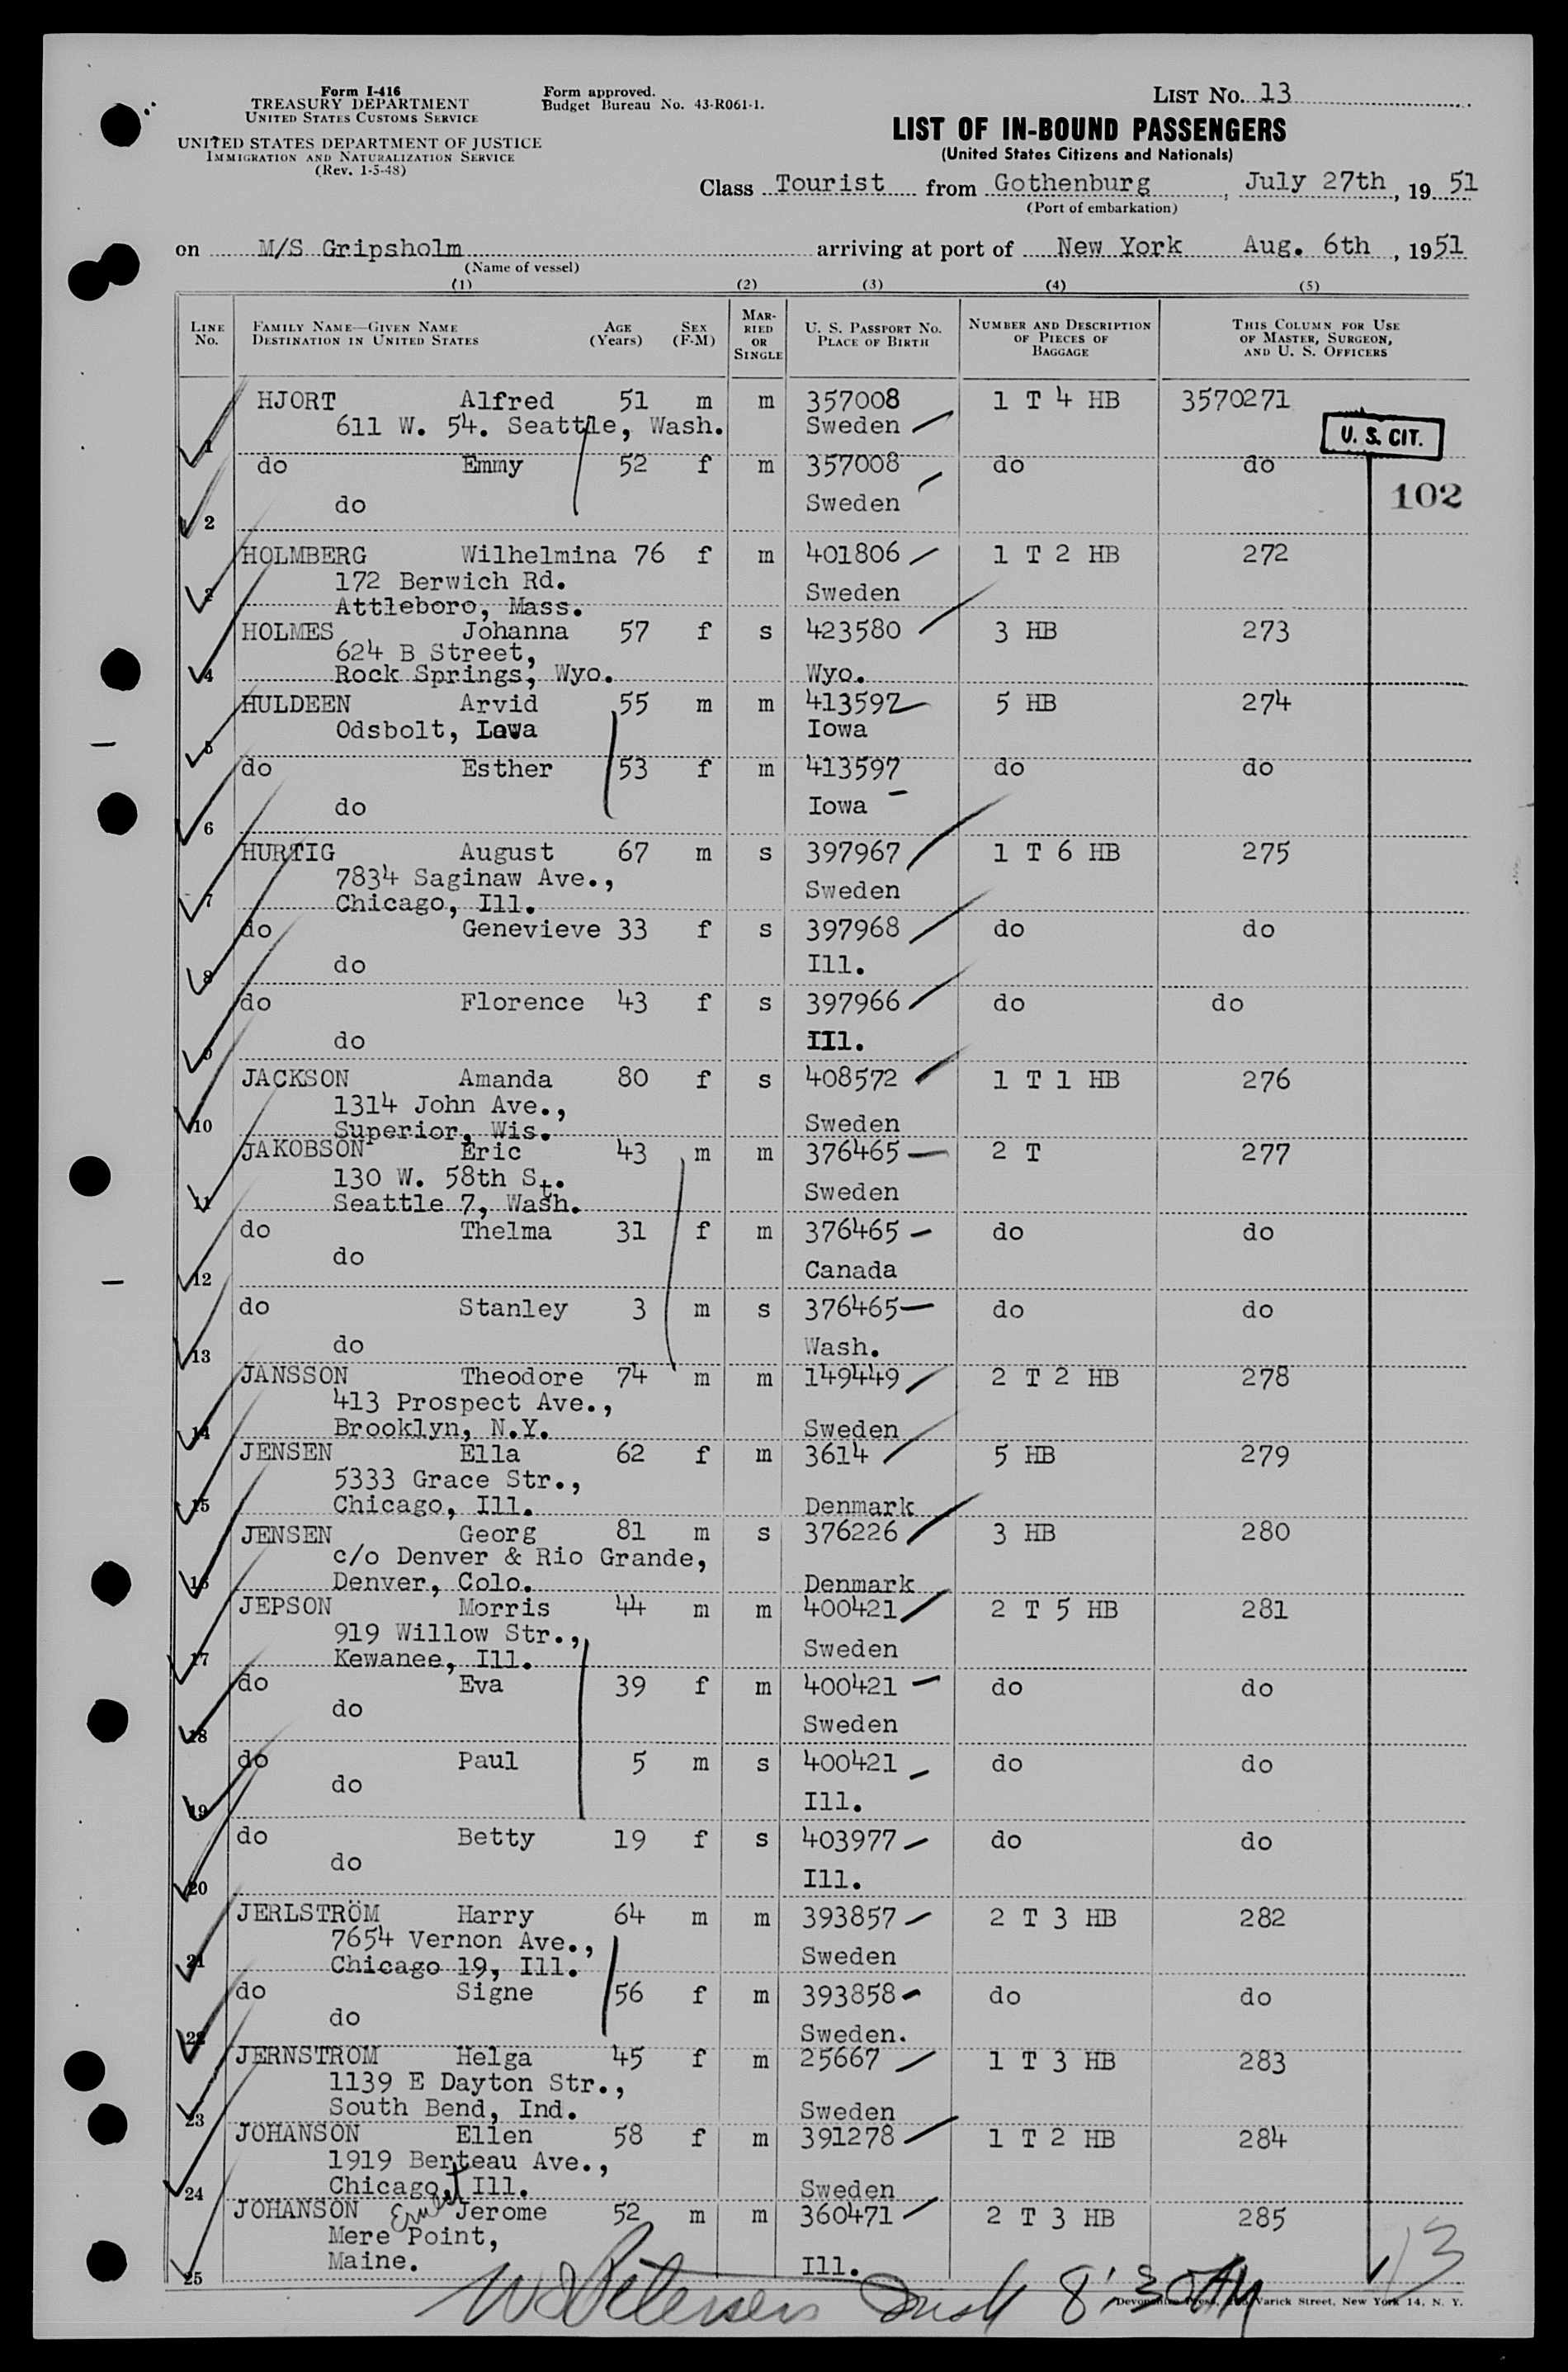 Form I-416
TREASURY DEPARTMENT
UNITED STATES CUSTOMS SERVICE
UNITED STATES DEPARTMENT OF JUSTICE
IMMIGRATION AND NATURALIZATION SERVICE
(Rev. 1-5-48)
Form approved.
Budget Bureau No. 43-R061-1.
LIST No. 13
LIST OF IN-BOUND PASSENGERS
(United States Citizens and Nationals)
Class Tourist from Gothenburg, July 27th, 19 51
(Port of embarkation)
on M/S Gripsholm arriving at port of New York Aug. 6th, 1951
(Name of vessel)
(1) (2) (3) (4) (5)
LINE No. FAMILY NAME—GIVEN NAME DESTINATION IN UNITED STATES AGE (Years) SEX (F-M) MARRIED OR SINGLE U. S. PASSPORT NO. PLACE OF BIRTH NUMBER AND DESCRIPTION OF PIECES OF BAGGAGE THIS COLUMN FOR USE OF MASTER, SURGEON, AND U. S. OFFICERS
HJORT Alfred 51 m m 357008 1 T 4 HB 3570271
611 W. 54. Seattle, Wash. Sweden
1
U. S. CIT.
do Emmy 52 f m 357008 do do
102
do Sweden
2
HOLMBERG Wilhelmina 76 f m 401806 1 T 2 HB 272
172 Berwich Rd. Sweden
3 Attleboro, Mass.
HOLMES Johanna 57 f s 423580 3 HB 273
624 B Street,
4 Rock Springs, Wyo. Wyo.
HULDEEN Arvid 55 m m 413592 5 HB 274
Odsbolt, Iowa Iowa
5
do Esther 53 f m 413597 do do
do Iowa
6
HURTIG August 67 m s 397967 1 T 6 HB 275
7834 Saginaw Ave., Sweden
7 Chicago, Ill.
do Genevieve 33 f s 397968 do do
do Ill.
8
do Florence 43 f s 397966 do do
do Ill.
9
JACKSON Amanda 80 f s 408572 1 T 1 HB 276
1314 John Ave.,
10 Superior, Wis. Sweden
JAKOBSON Eric 43 m m 376465 2 T 277
130 W. 58th St. Sweden
11 Seattle 7, Wash.
do Thelma 31 f m 376465 do do
do Canada
12
do Stanley 3 m s 376465 do do
do Wash.
13
JANSSON Theodore 74 m m 149449 2 T 2 HB 278
413 Prospect Ave.,
14 Brooklyn, N.Y. Sweden
JENSEN Ella 62 f m 3614 5 HB 279
5333 Grace Str.,
15 Chicago, Ill. Denmark
JENSEN Georg 81 m s 376226 3 HB 280
c/o Denver & Rio Grande,
16 Denver, Colo. Denmark
JEPSON Morris 44 m m 400421 2 T 5 HB 281
919 Willow Str., Sweden
17 Kewanee, Ill.
do Eva 39 f m 400421 do do
do Sweden
18
do Paul 5 m s 400421 do do
do Ill.
19
do Betty 19 f s 403977 do do
do Ill.
20
JERLSTRÖM Harry 64 m m 393857 2 T 3 HB 282
7654 Vernon Ave., Sweden
21 Chicago 19, Ill.
do Signe 56 f m 393858 do do
do Sweden.
22
JERNSTROM Helga 45 f m 25667 1 T 3 HB 283
1139 E Dayton Str.,
23 South Bend, Ind. Sweden
JOHANSON Ellen 58 f m 391278 1 T 2 HB 284
1919 Berteau Ave.,
24 Chicago, Ill. Sweden
JOHANSON Ernst Jerome 52 m m 360471 2 T 3 HB 285
Mere Point,
25 Maine. Ill.
13
Devonshire Press, Varick Street, New York 14, N. Y.